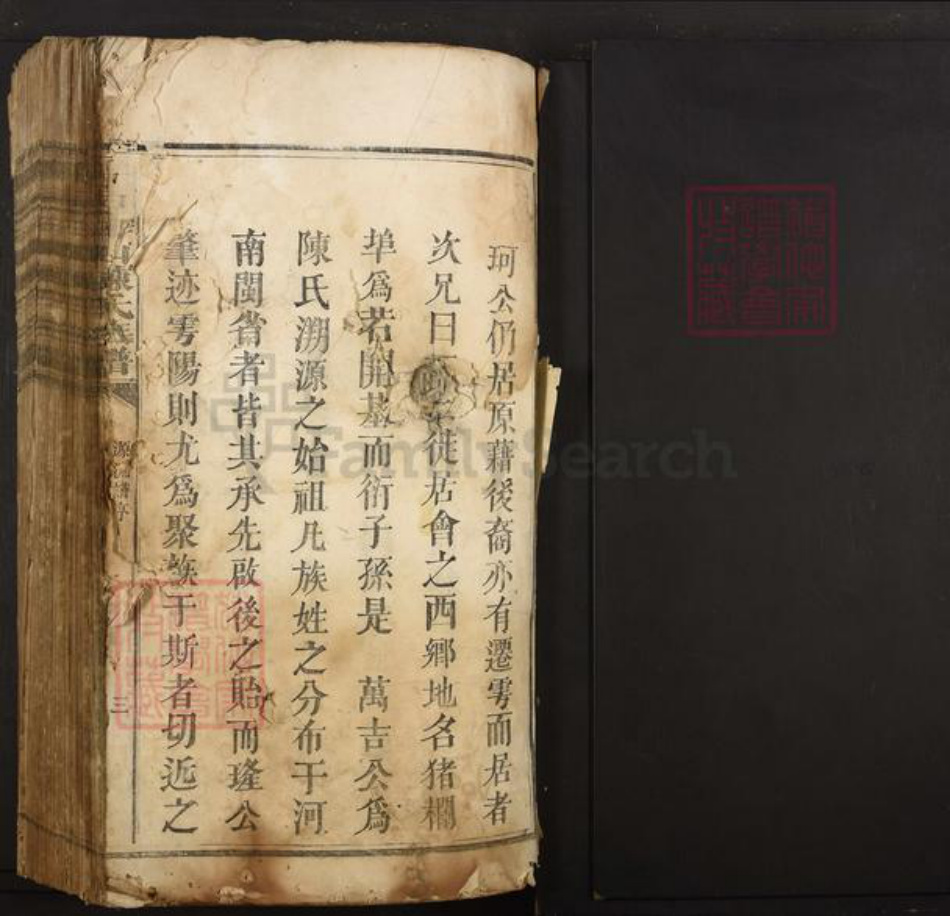 珂公仍居原藉後裔亦有遷雩而居者
次兄曰徒居會之西鄉地名猪欄
埠爲若開基而衍子孫是 萬吉公爲
陳氏溯源之始祖凡族姓之分布于河
南閩省者皆其承先啟後之貽而瑾公
肇迹雩陽則尤爲聚族于斯者切近之
陳氏族譜
三
FamilySearch